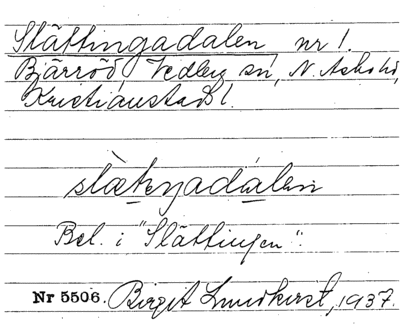 Slättingadalen nr 1.
Bjärröd, Vedby sn, N. Åsbo hd,
Kristianstads l.
slætɩŋadalen
Bel. i "Slättingen".
Nr 5506. Birgit Lundkvist, 1937.